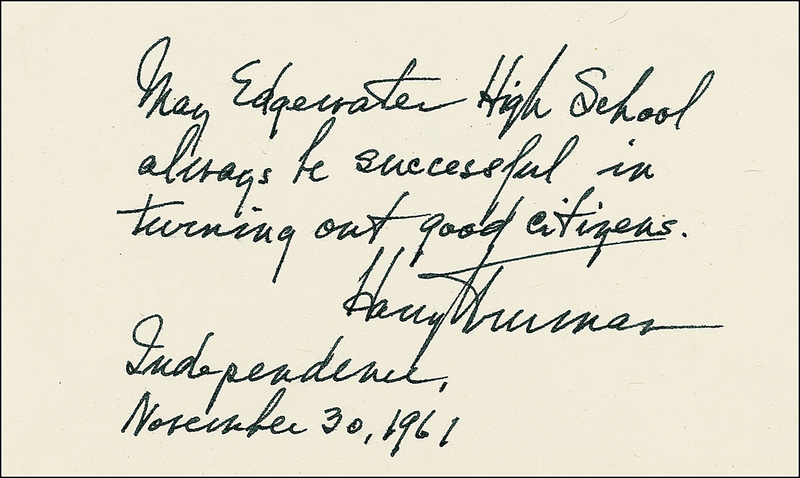 May Edgewater High School
always be successful in
turning out good citizens.
Harry Truman
Independence,
November 30, 1961